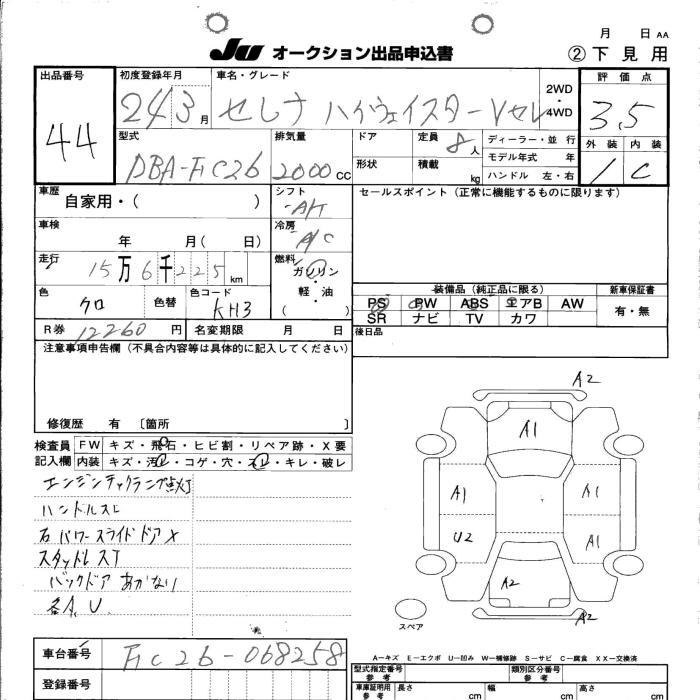 月 日 AA
JU オークション出品申込書 ②下見用
出品番号 初度登録年月 車名・グレード 2WD・4WD 評価点
44 24/3月 セレナ ハイウェイスターVセレ 3.5
型式 排気量 ドア 定員 8人 ディーラー・並行 外装 内装
DBA-FC26 2000 CC 形状 積載 kg モデル年式 年 1 C
ハンドル 左・右
車歴 自家用・( ) シフト A/T セールスポイント(正常に機能するものに限ります)
車検 年 月( 日) 冷房 A/C
走行 15万6千225km 燃料 ガソリン・軽・油 ( )
装備品(純正品に限る) 新車保証書
色 クロ 色替 色コード KH3 PS PW ABS エアB AW 有・無
SR ナビ TV カワ
R券 12260円 名変期限 月 日 後日品
注意事項申告欄(不具合内容等は具体的に記入してください)
修復歴 有 〔箇所 〕
検査員記入欄 FW キズ・飛石・ヒビ割・リペア跡・X要
内装 キズ・汚レ・コゲ・穴・スレ・キレ・破レ
エンジンチェックランプ点灯
ハンドルスレ
右パワースライドドアX
スタッドレスT
バックドアあかない
各A.U.
A2
A1
A1 A1
U2 A1
A2
A2
スペア
A-キズ E-エクボ U-凹み W-補修跡 S-サビ C-腐食 XX-交換済
車台番号 FC26-068258
型式指定番号 参考 類別区分番号 参考
登録番号 車庫証明用 参考 長さ cm 幅 cm 高さ cm